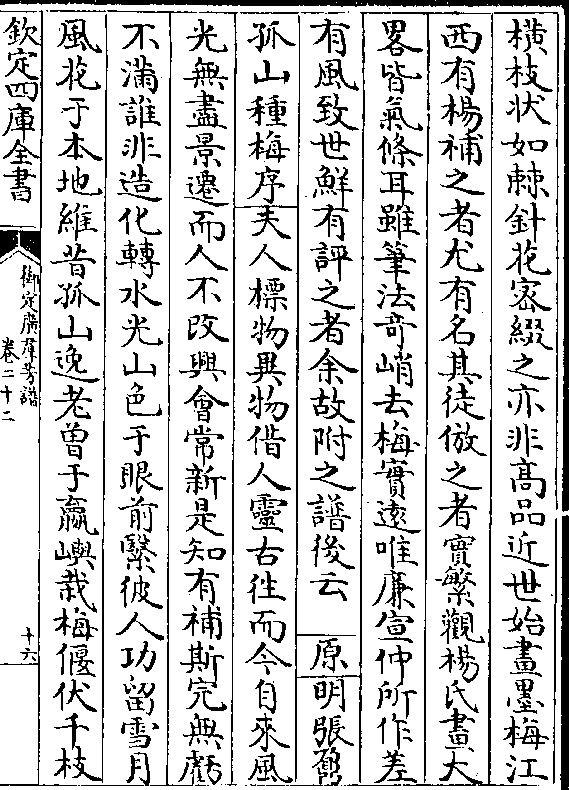 橫枝狀如棘針花宻綴之亦非高品近世始畫墨梅江
西有楊補之者尤有名其徒倣之者實繁觀楊氏畫大
畧皆氣條耳雖筆法奇峭去梅實逺唯廉宣仲所作差
有風致世鮮有評之者余故附之譜後云 原明張鼐
孤山種梅序夫人標物異物借人靈古徃而今自來風
光無盡景遷而人不改興㑹常新是知有補斯完無虧
不滿誰非造化轉水光山色于眼前緊彼人功留雪月
風花于本地維昔孤山逸老曽于瀛嶼栽梅偃伏千枝
欽定四庫全書
御定廣羣芳譜
卷二十二
十六